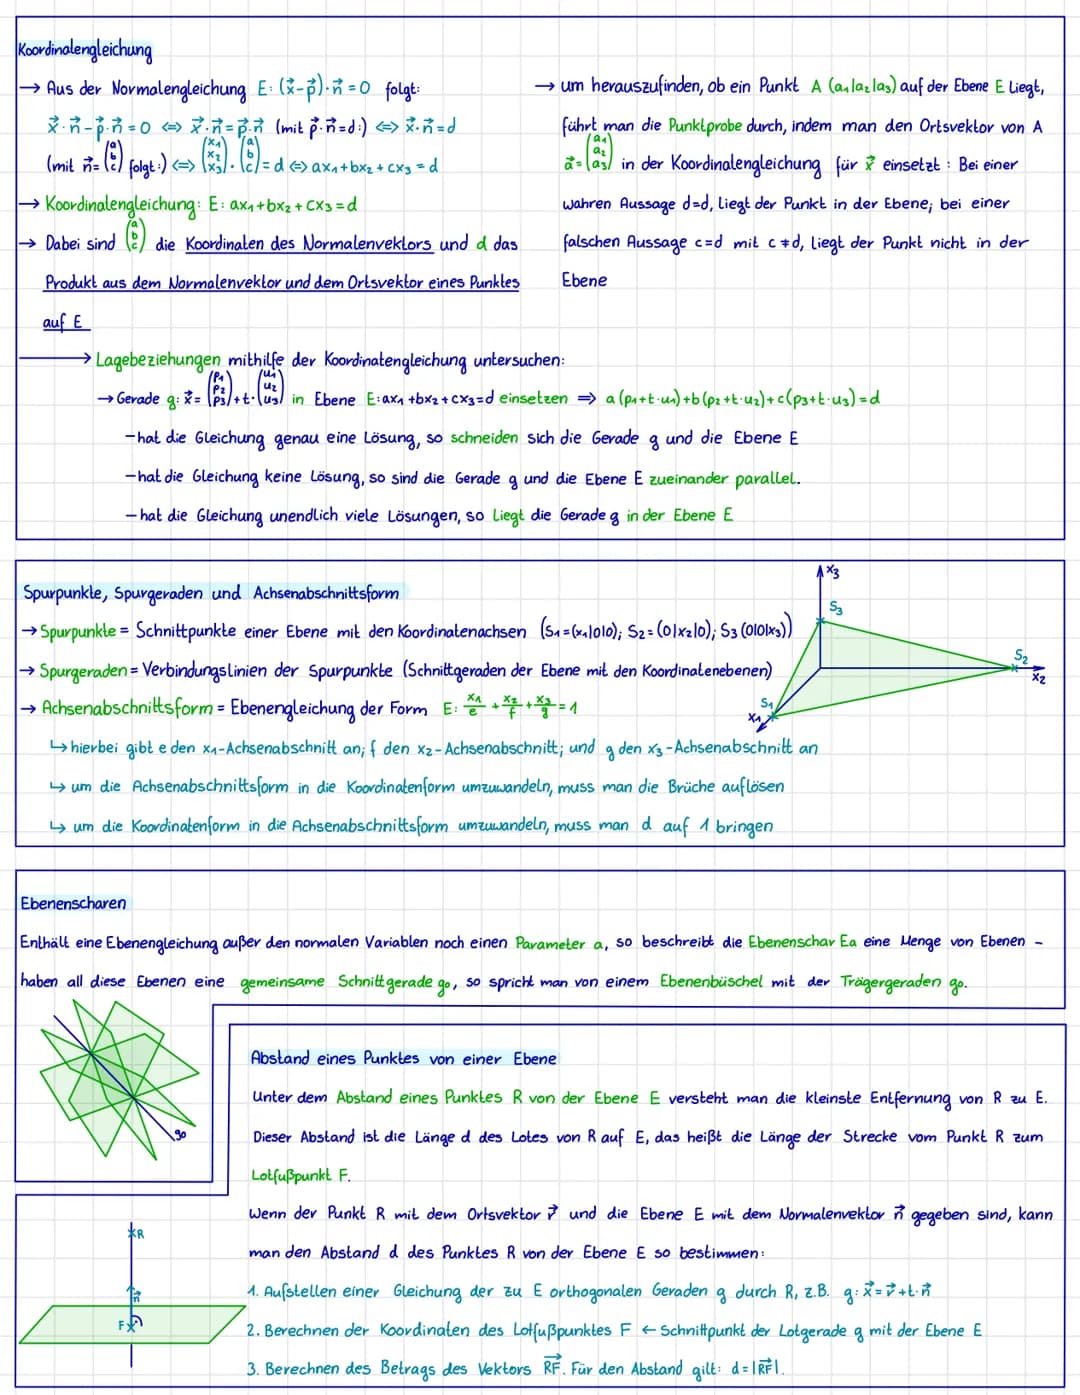 Koordinatengleichung
→ Aus der Normalengleichung E: (x⃗-p⃗)·n⃗=0 folgt:
x⃗·n⃗-p⃗·n⃗=0 ⇔ x⃗·n⃗=p⃗·n⃗ (mit p⃗·n⃗=d:) ⇔ x⃗·n⃗=d
(mit n⃗=(a b c) folgt:) ⇔ (x₁ x₂ x₃)·(a b c)=d ⇔ ax₁+bx₂+cx₃=d
→ Koordinatengleichung: E: ax₁+bx₂+cx₃=d
→ Dabei sind (a b c) die Koordinaten des Normalenvektors und d das
Produkt aus dem Normalenvektor und dem Ortsvektor eines Punktes
auf E
→ um herauszufinden, ob ein Punkt A (a₁|a₂|a₃) auf der Ebene E Liegt,
führt man die Punktprobe durch, indem man den Ortsvektor von A
a⃗=(a₁ a₂ a₃) in der Koordinatengleichung für x⃗ einsetzt : Bei einer
wahren Aussage d=d, liegt der Punkt in der Ebene; bei einer
falschen Aussage c=d mit c≠d, liegt der Punkt nicht in der
Ebene
→ Lagebeziehungen mithilfe der Koordinatengleichung untersuchen:
→ Gerade g: x⃗=(p₁ p₂ p₃)+t·(u₁ u₂ u₃) in Ebene E:ax₁+bx₂+cx₃=d einsetzen ⇒ a(p₁+t·u₁)+b(p₂+t·u₂)+c(p₃+t·u₃)=d
-hat die Gleichung genau eine Lösung, so schneiden sich die Gerade g und die Ebene E
-hat die Gleichung keine Lösung, so sind die Gerade g und die Ebene E zueinander parallel.
-hat die Gleichung unendlich viele Lösungen, so Liegt die Gerade g in der Ebene E
Spurpunkte, Spurgeraden und Achsenabschnittsform
→ Spurpunkte = Schnittpunkte einer Ebene mit den Koordinatenachsen (S₁=(x₁|0|0); S₂=(0|x₂|0); S₃(0|0|x₃))
→ Spurgeraden = Verbindungslinien der Spurpunkte (Schnittgeraden der Ebene mit den Koordinatenebenen)
→ Achsenabschnittsform = Ebenengleichung der Form E: x₁/e + x₂/f + x₃/g = 1
↳ hierbei gibt e den x₁-Achsenabschnitt an; f den x₂-Achsenabschnitt; und g den x₃-Achsenabschnitt an
↳ um die Achsenabschnittsform in die Koordinatenform umzuwandeln, muss man die Brüche auflösen
↳ um die Koordinatenform in die Achsenabschnittsform umzuwandeln, muss man d auf 1 bringen
x₃
S₃
S₂
x₂
S₁
x₁
Ebenenscharen
Enthält eine Ebenengleichung außer den normalen Variablen noch einen Parameter a, so beschreibt die Ebenenschar Ea eine Menge von Ebenen -
haben all diese Ebenen eine gemeinsame Schnittgerade g₀, so spricht man von einem Ebenenbüschel mit der Trägergeraden g₀.
g₀
Abstand eines Punktes von einer Ebene
Unter dem Abstand eines Punktes R von der Ebene E versteht man die kleinste Entfernung von R zu E.
Dieser Abstand ist die Länge d des Lotes von R auf E, das heißt die Länge der Strecke vom Punkt R zum
Lotfußpunkt F.
Wenn der Punkt R mit dem Ortsvektor r⃗ und die Ebene E mit dem Normalenvektor n⃗ gegeben sind, kann
man den Abstand d des Punktes R von der Ebene E so bestimmen:
1. Aufstellen einer Gleichung der zu E orthogonalen Geraden g durch R, z.B. g: x⃗=r⃗+t·n⃗
2. Berechnen der Koordinaten des Lotfußpunktes F ← Schnittpunkt der Lotgerade g mit der Ebene E
3. Berechnen des Betrags des Vektors RF⃗. Für den Abstand gilt: d=|RF⃗|.
R
n⃗
F